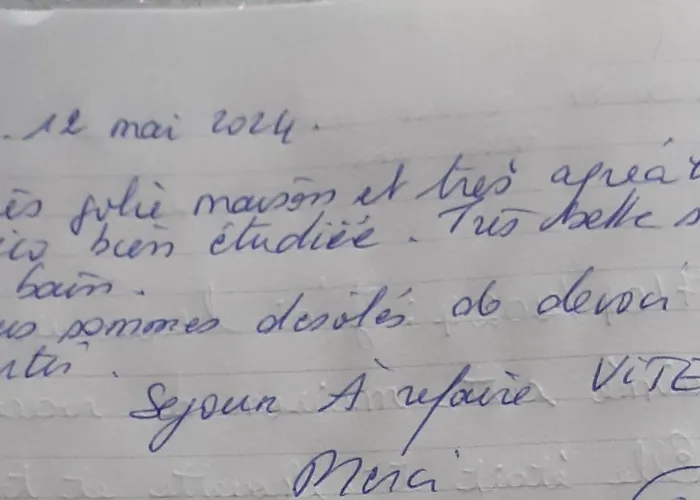 . 12 mai 2024.
ès jolie maison et très agréa
ico bien étudiée. Très belle s
bain.
us sommes désolés de devoi
rtir.
Sejour À refaire VITE
Merci